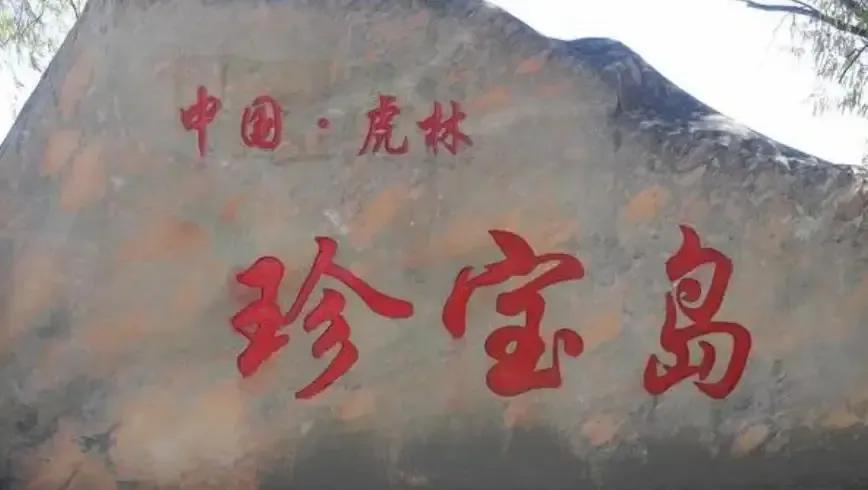 中国·虎林
珍宝岛